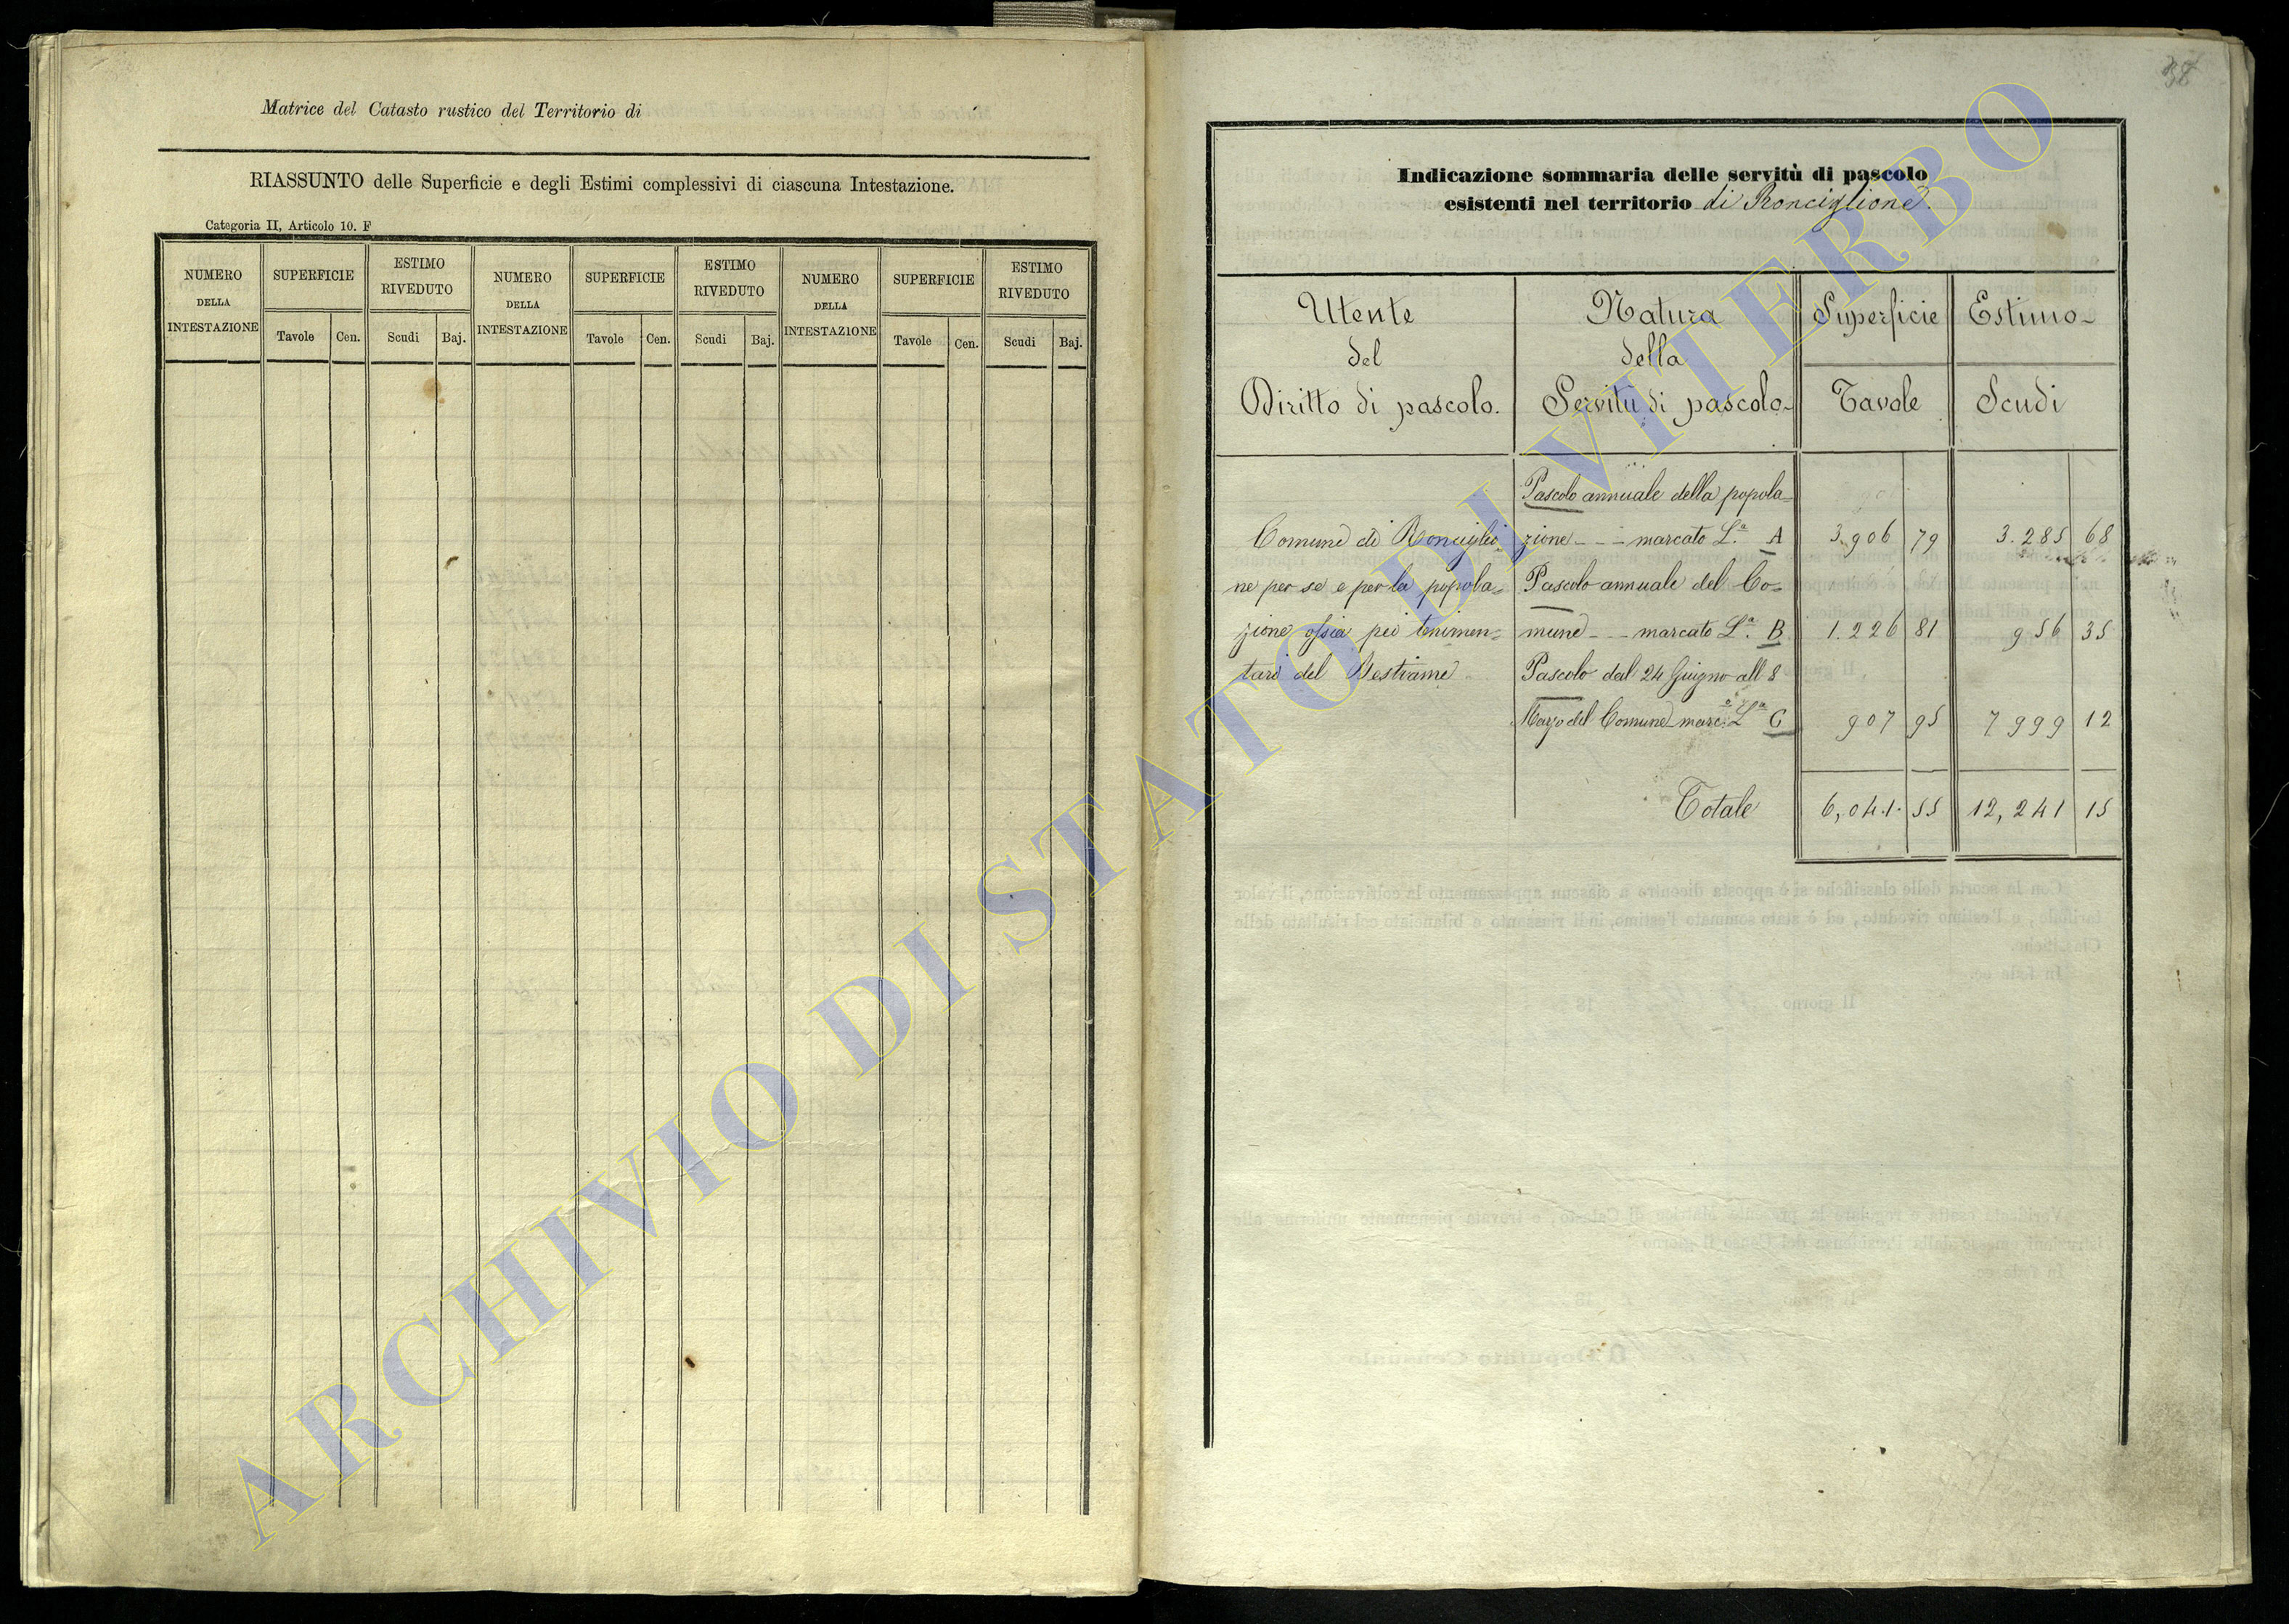 Matrice del Catasto rustico del Territorio di
RIASSUNTO delle Superficie e degli Estimi complessivi di ciascuna Intestazione.
Categoria II, Articolo 10. F
NUMERO DELLA INTESTAZIONE | SUPERFICIE | ESTIMO RIVEDUTO | NUMERO DELLA INTESTAZIONE | SUPERFICIE | ESTIMO RIVEDUTO | NUMERO DELLA INTESTAZIONE | SUPERFICIE | ESTIMO RIVEDUTO
Tavole | Cen. | Scudi | Baj. | Tavole | Cen. | Scudi | Baj. | Tavole | Cen. | Scudi | Baj.
38
Indicazione sommaria delle servitù di pascolo
esistenti nel territorio di Ronciglione.
Utente | Natura | Superficie | Estimo
del | della
Diritto di pascolo. | Servitù di pascolo | Tavole | Scudi
Pascolo annuale della popola=
Comune di Ronciglio= | zione - - - marcato L.ª A | 3.906 | 79 | 3.285 | 68
ne per se e per la popola= | Pascolo annuale del Co=
zione ossia pei tenimen= | mune - - - marcato L.ª B | 1.226 | 81 | 956 | 35
tari del Bestiame | Pascolo dal 24 Giugno all 8
Marzo del Comune marc.º L.ª C | 907 | 95 | 7999 | 12
Totale | 6,041. | 55 | 12,241 | 15
ARCHIVIO DI STATO DI VITERBO